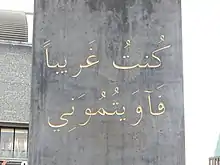 كُنتُ غَريباً
فَآوَيتُمُونِي